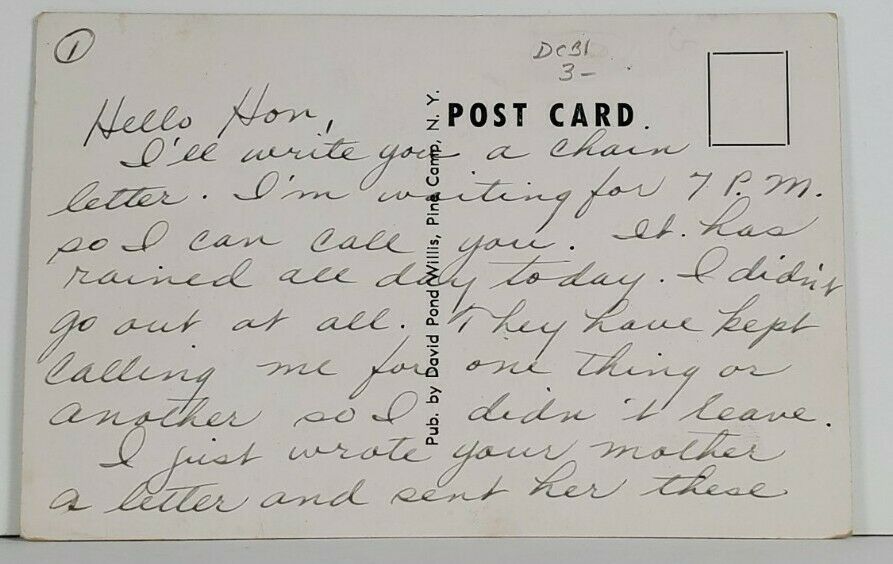 ①
DCB1
3-
POST CARD
Pub. by David Pond Willis, Pine Camp, N. Y.
Hello Hon,
I'll write you a chain
letter. I'm waiting for 7 P.M.
so I can call you. It has
rained all day today. I didn't
go out at all. They have kept
calling me for one thing or
another so I didn't leave.
I just wrote your mother
a letter and sent her these